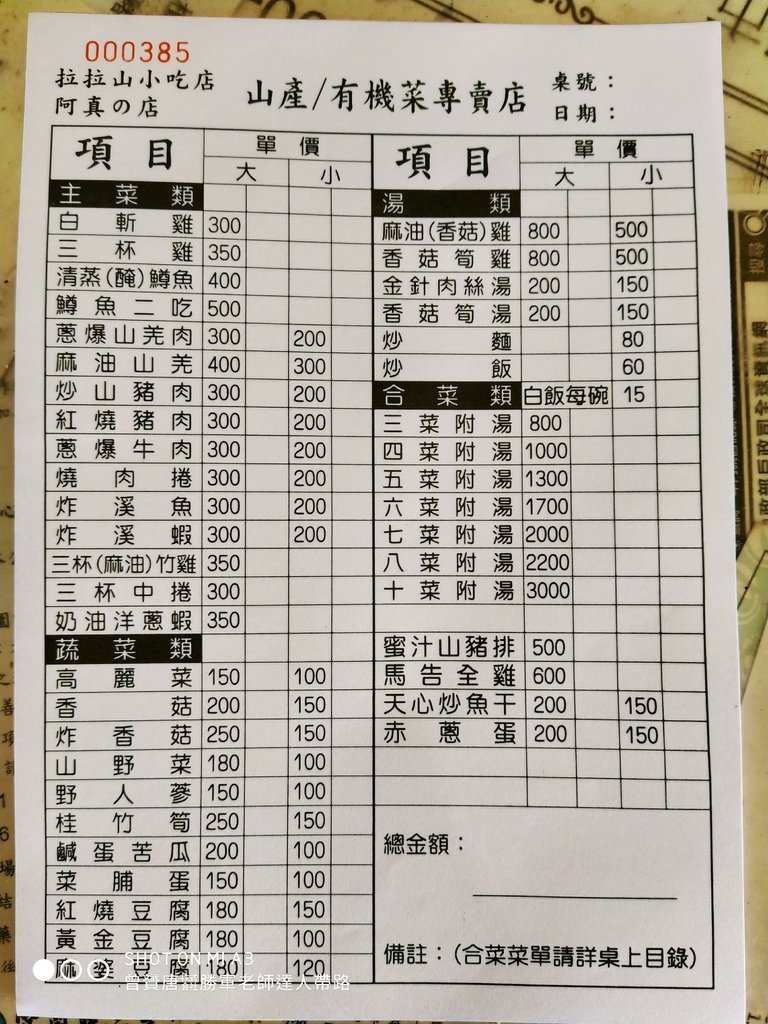 000385
拉拉山小吃店
阿真の店
山產/有機菜專賣店
桌號：
日期：
項目 單價
大 小
主菜類
白斬雞 300
三杯雞 350
清蒸(醃)鱒魚 400
鱒魚二吃 500
蔥爆山羌肉 300 200
麻油山羌 400 300
炒山豬肉 300 200
紅燒豬肉 300 200
蔥爆牛肉 300 200
燒肉捲 300 200
炸溪魚 300 200
炸溪蝦 300 200
三杯(麻油)竹雞 350
三杯中捲 300
奶油洋蔥蝦 350
蔬菜類
高麗菜 150 100
香菇 200 150
炸香菇 250 150
山野菜 180 100
野人蔘 150 100
桂竹筍 250 150
鹹蛋苦瓜 200 100
菜脯蛋 150 100
紅燒豆腐 180 150
黃金豆腐 180 100
麻婆豆腐 180 120
項目 單價
大 小
湯類
麻油(香菇)雞 800 500
香菇筍雞 800 500
金針肉絲湯 200 150
香菇筍湯 200 150
炒麵 80
炒飯 60
合菜類 白飯每碗 15
三菜附湯 800
四菜附湯 1000
五菜附湯 1300
六菜附湯 1700
七菜附湯 2000
八菜附湯 2200
十菜附湯 3000
蜜汁山豬排 500
馬告全雞 600
天心炒魚干 200 150
赤蔥蛋 200 150
總金額：
備註：(合菜菜單請詳桌上目錄)
SHOT ON MI A3